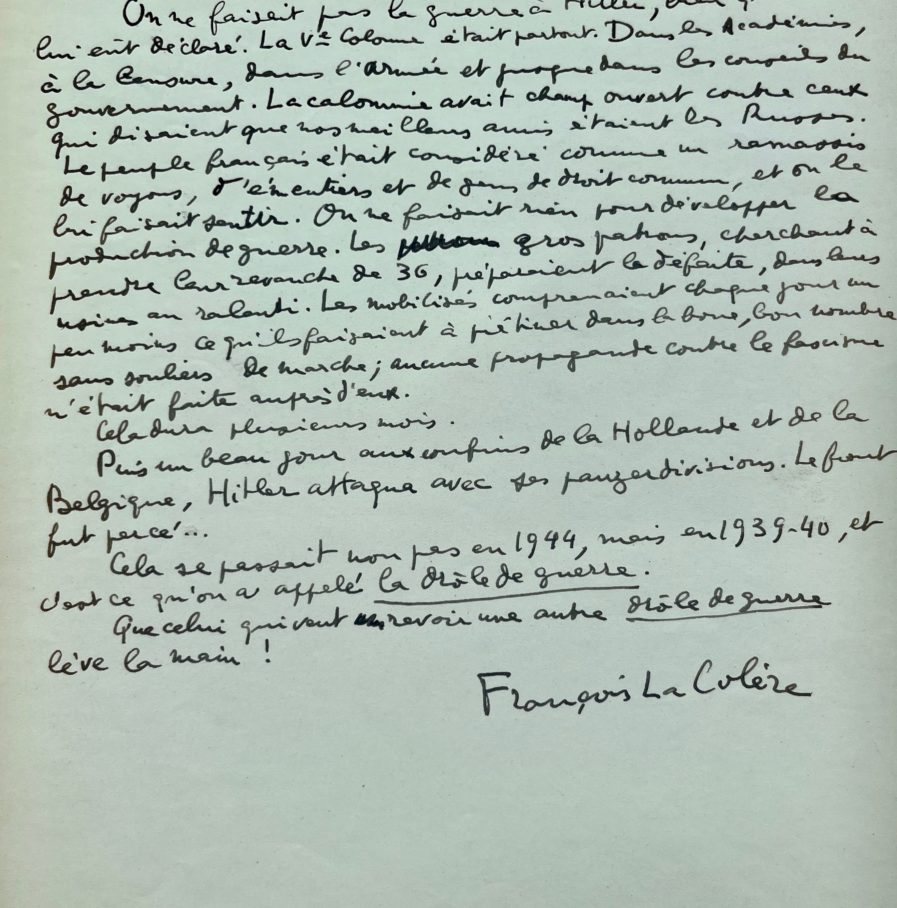 On ne faisait pas la guerre à Hitler,
lui eût déclaré. La Ve Colonne était partout. Dans les Académies,
à la Censure, dans l'Armée et jusque dans les conseils du
gouvernement. La calomnie avait champ ouvert contre ceux
qui disaient que nos meilleurs amis étaient les Russes.
Le peuple français était considéré comme un ramassis
de voyous, d'émeutiers et de gens de droit commun, et on le
lui faisait sentir. On ne faisait rien pour développer la
production de guerre. Les gros patrons, cherchant à
prendre leur revanche de 36, préparaient la défaite, dans leurs
usines au ralenti. Les mobilisés comprenaient chaque jour un
peu moins ce qu'ils faisaient à piétiner dans la boue, bon nombre
sans souliers de marche ; aucune propagande contre le fascisme
n'était faite auprès d'eux.
Cela dura plusieurs mois.
Puis un beau jour aux confins de la Hollande et de la
Belgique, Hitler attaqua avec ses panzerdivisions. Le front
fut percé...
Cela se passait non pas en 1944, mais en 1939-40, et
c'est ce qu'on a appelé la drôle de guerre.
Que celui qui veut revoir une autre drôle de guerre
lève la main !
François La Colère